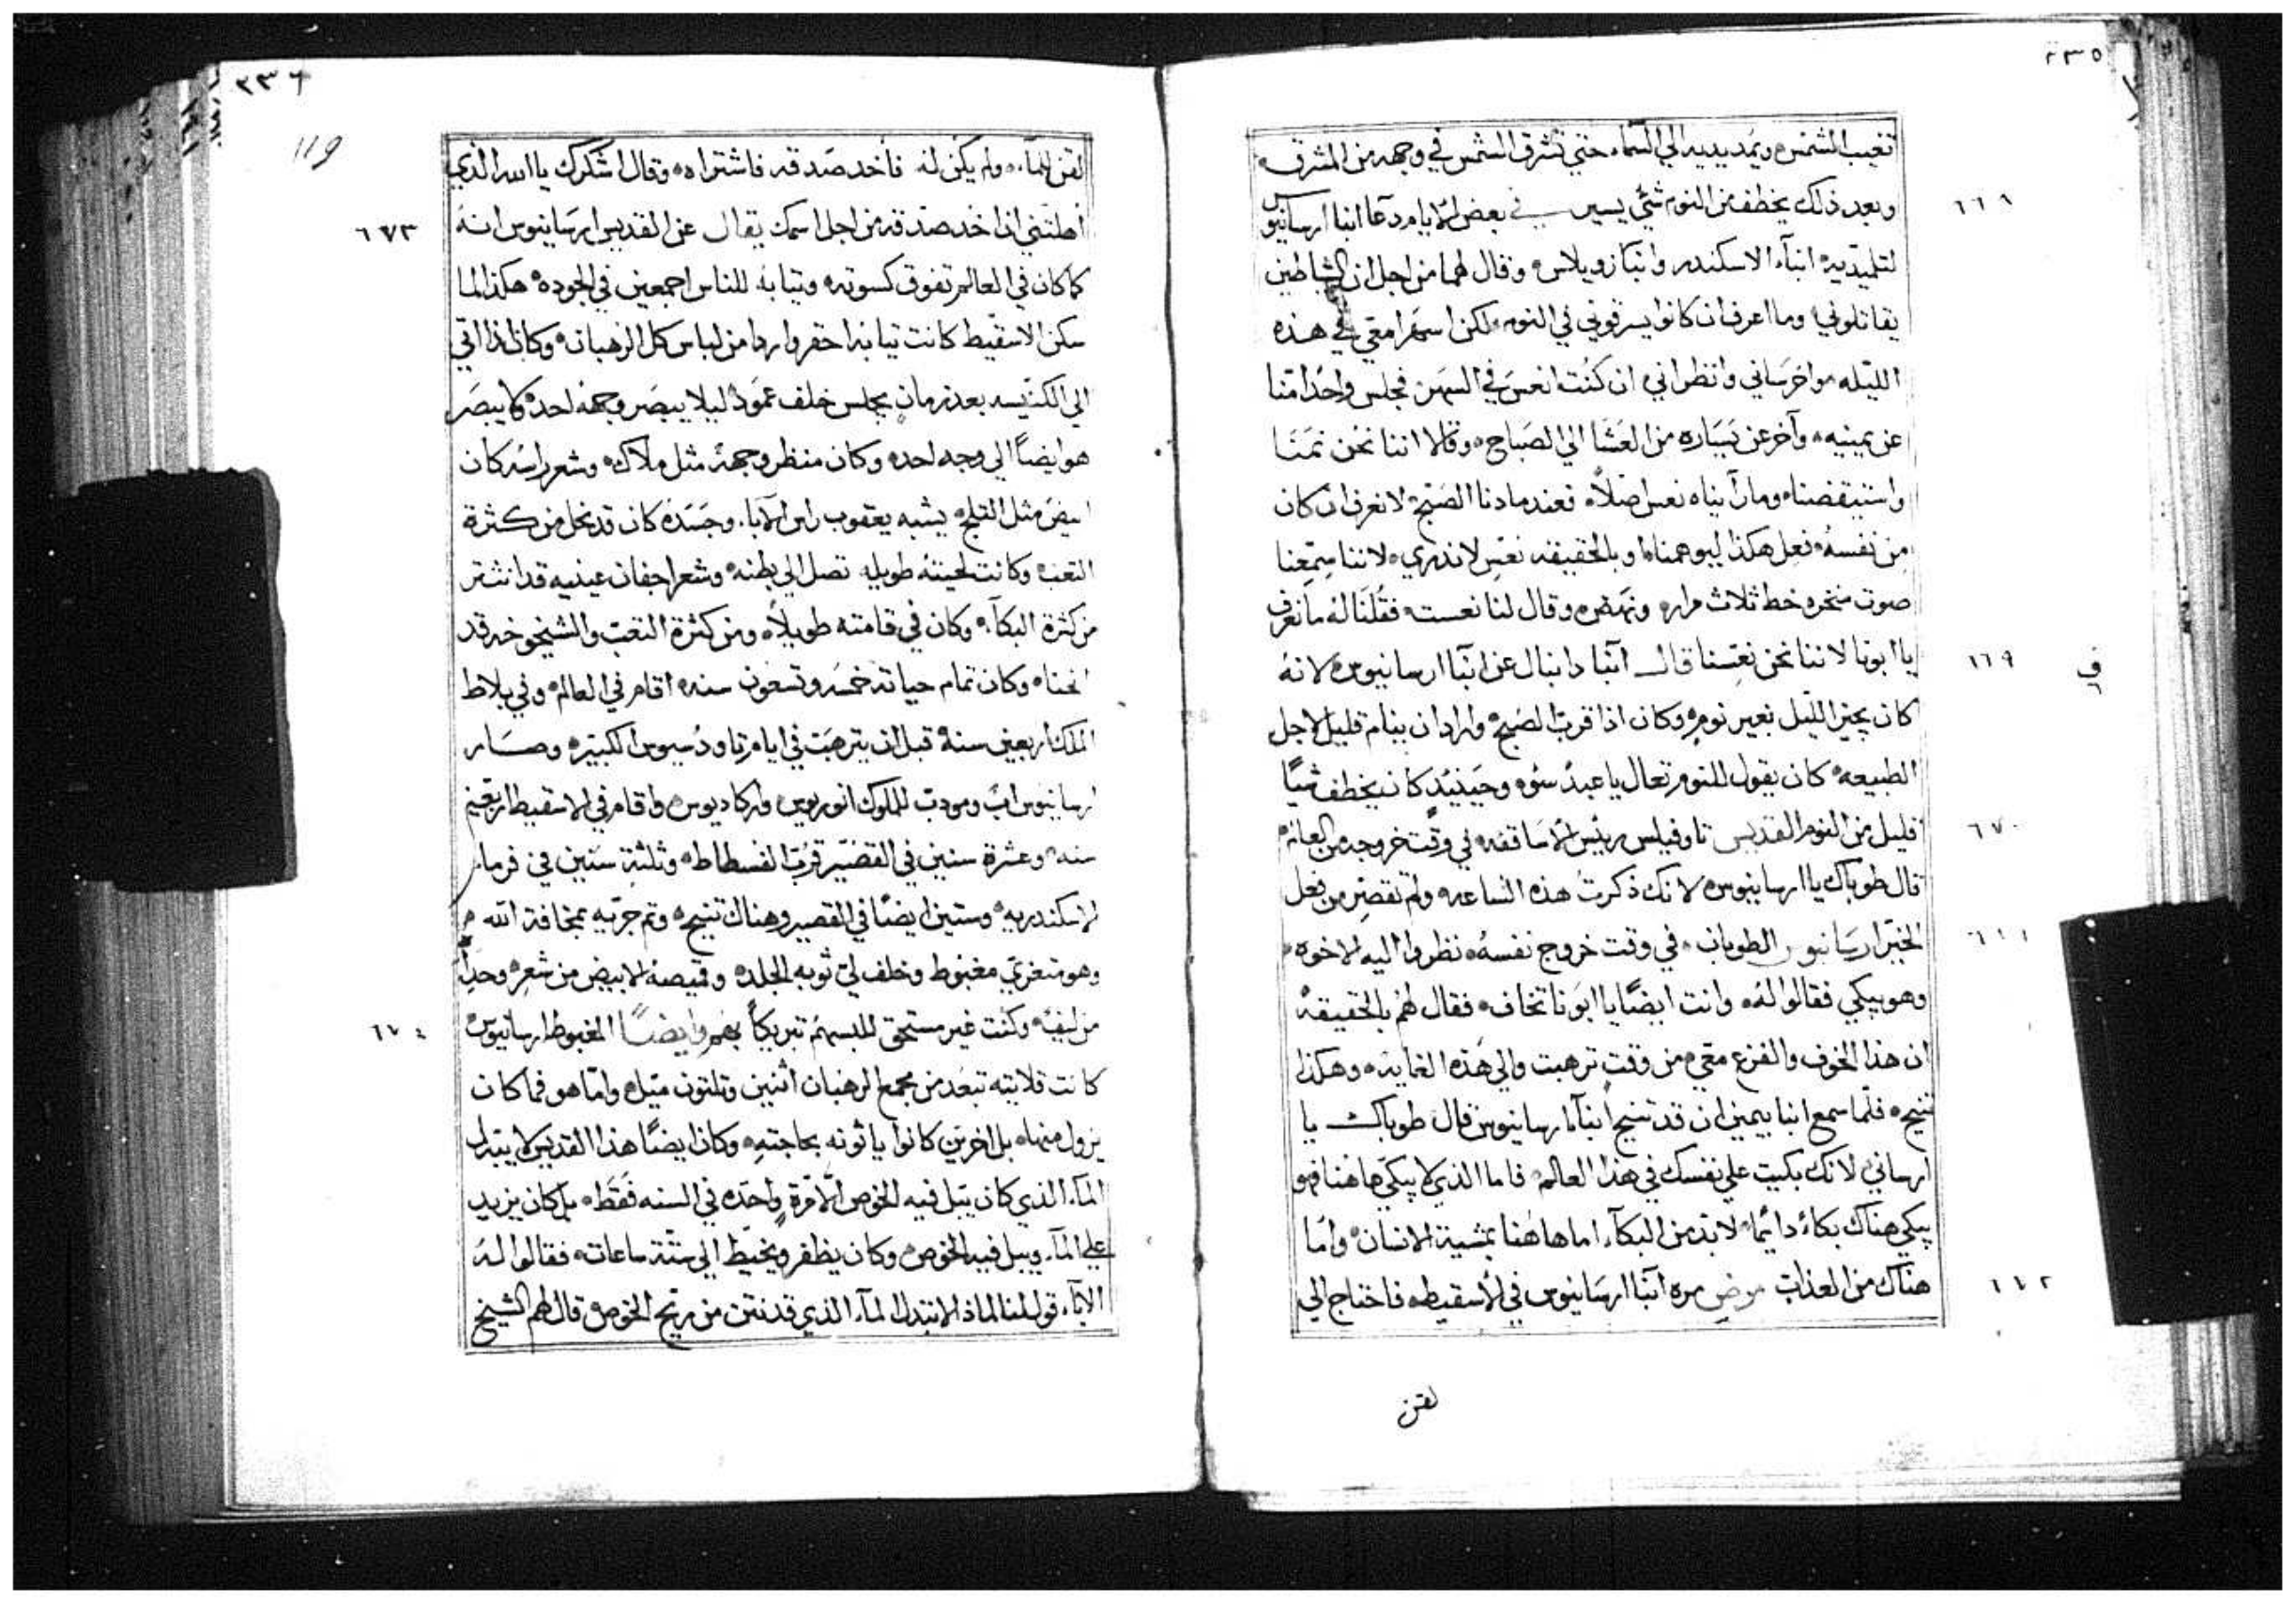 ٢٣٥
تغيب الشمس ويمد يديه الي السماء حتي تشرق الشمس في وجهه من المشرق
وبعد ذلك يخطف من النوم شئ يسير في بعض الايام دعا انبا ارسانيوس
٦٦٨
لتلميذيه انبآء الاسكندر وانبا زويلاس وقال لهما من اجل ان الشياطين
يقاتلوني وما اعرف ان كانوا يسرقوني في النوم لكن اسهرا معي في هذه
الليله واحرساني وانظراني ان كنت انعس في السهر فجلس واحدا منا
عن يمينيه وآخر عن يساره من العشا الي الصباح وقالا اننا نحن نمنا
واستيقضنا وما رأيناه نعس اصلاً فعندما دنا الصبح لا نعرف ان كان
من نفسه فعل هكذا ليوهمنا او بالحقيقه نعس لا ندري لاننا سمعنا
صوت منخره خط ثلاث مرار ونهض وقال لنا نعست فقلنا له ما نعرف
يا ابونا لاننا نحن نعسنا قال انبا دانيال عن انبا ارسانيوس لانه
٦٦٩
ف
كان يجيز الليل بغير نوم وكان اذا قرب الصبح واراد ان ينام قليل لاجل
الطبيعه كان يقول للنوم تعال يا عبد سوء وحينيد كان يخطف شيًا
قليل من النوم القديس تاوفيلس رييس الاساقفه في وقت خروجه من العالم
٦٧٠
قال طوباك يا ارسانيوس لانك ذكرت هذه الساعه ولم تقصر من فعل
الخير ارسانيوس الطوبان في وقت خروج نفسه نظروا اليه الاخوه
٦٧١
وهو يبكي فقالوا له وانت ايضًا يا ابونا تخاف فقال لهم بالحقيقه
ان هذا الخوف والفزع معي من وقت ترهبت والي هذه الغايه وهكذا
تنيح فلما سمع انبا بيمين ان قد تنيح انبا ارسانيوس قال طوباك يا
ارساني لانك بكيت علي نفسك في هذا العالم فاما الذي لا يبكي هاهنا فهو
يبكي هناك بكاء دائما لا بد من البكآء اما هاهنا بمشية الانسان واما
هناك من العذاب مرض مره انبا ارسانيوس في الاسقيط فاحتاج الي
٦٧٢
لقن
٢٣٦
119
لقن للمآء ولم يكن له فاخد صدقه فاشتراه وقال اشكرك يا الله الذي
اهلتني ان اخد صدقه من اجل اسمك يقال عن القديس ارسانيوس انه
٦٧٣
كما كان في العالم تفوق كسوته وتيابه للناس اجمعين في الجوده هكذا لما
سكن الاسقيط كانت تيابه احقر واردا من لباس كل الرهبان وكان اذا اتي
الي الكنيسه بعد زمان يجلس خلف عمود ليلا يبصر وجهه احد ولا يبصر
هو ايضاً الي وجه احد وكان منظر وجهه مثل ملاك وشعر راسه كان
ابيض مثل الثلج يشبه يعقوب راس الابا وجسده كان قد نحل من كثرة
التعب وكانت لحيته طويله تصل الي بطنه وشعر اجفان عينيه قد انتثر
من كثرة البكآء وكان في قامته طويلاً ومن كثرة التعب والشيخوخه قد
انحنا وكان تمام حياته خمسه وتسعون سنه اقام في العالم وفي بلاط
الملك اربعين سنة قبل ان يترهب في ايام تاودسيوس الكبير وصار
ارسانيوس اب ومودب للملوك انوريوس واركاديوس واقام في الاسقيط اربعين
سنه وعشرة سنين في القصير قرب الفسطاط وثلثة سنين في فرما
الاسكندريه وستين ايضًا في القصير وهناك تنيح وتم جريه بمخافة الله
وهو متعزي مغبوط وخلف لي ثوبه الجلد وقميصه الابيض من شعر وحداً
من ليفه وكنت غير مستحق للبسهم تبريكاً بهم وايضاً المغبوط ارسانيوس
٦٧٤
كانت قلايته تبعد من مجمع الرهبان اثنين وتلتون ميل واما هو فما كان
يزول منها بل اخرين كانوا ياتونه بحاجته وكان ايضًا هذا القديس لا يبتدل
المآء الذي كان يبل فيه الخوص الا مرة واحده في السنه فقط بل كان يزيد
علي المآء ويبل فيه الخوص وكان يظفر ويخيط الي ستة ساعات فقالوا له
الابآء قول لنا لماذا لا تبتدل المآء الذي قد نتن من ريح الخوص قال لهم الشيخ